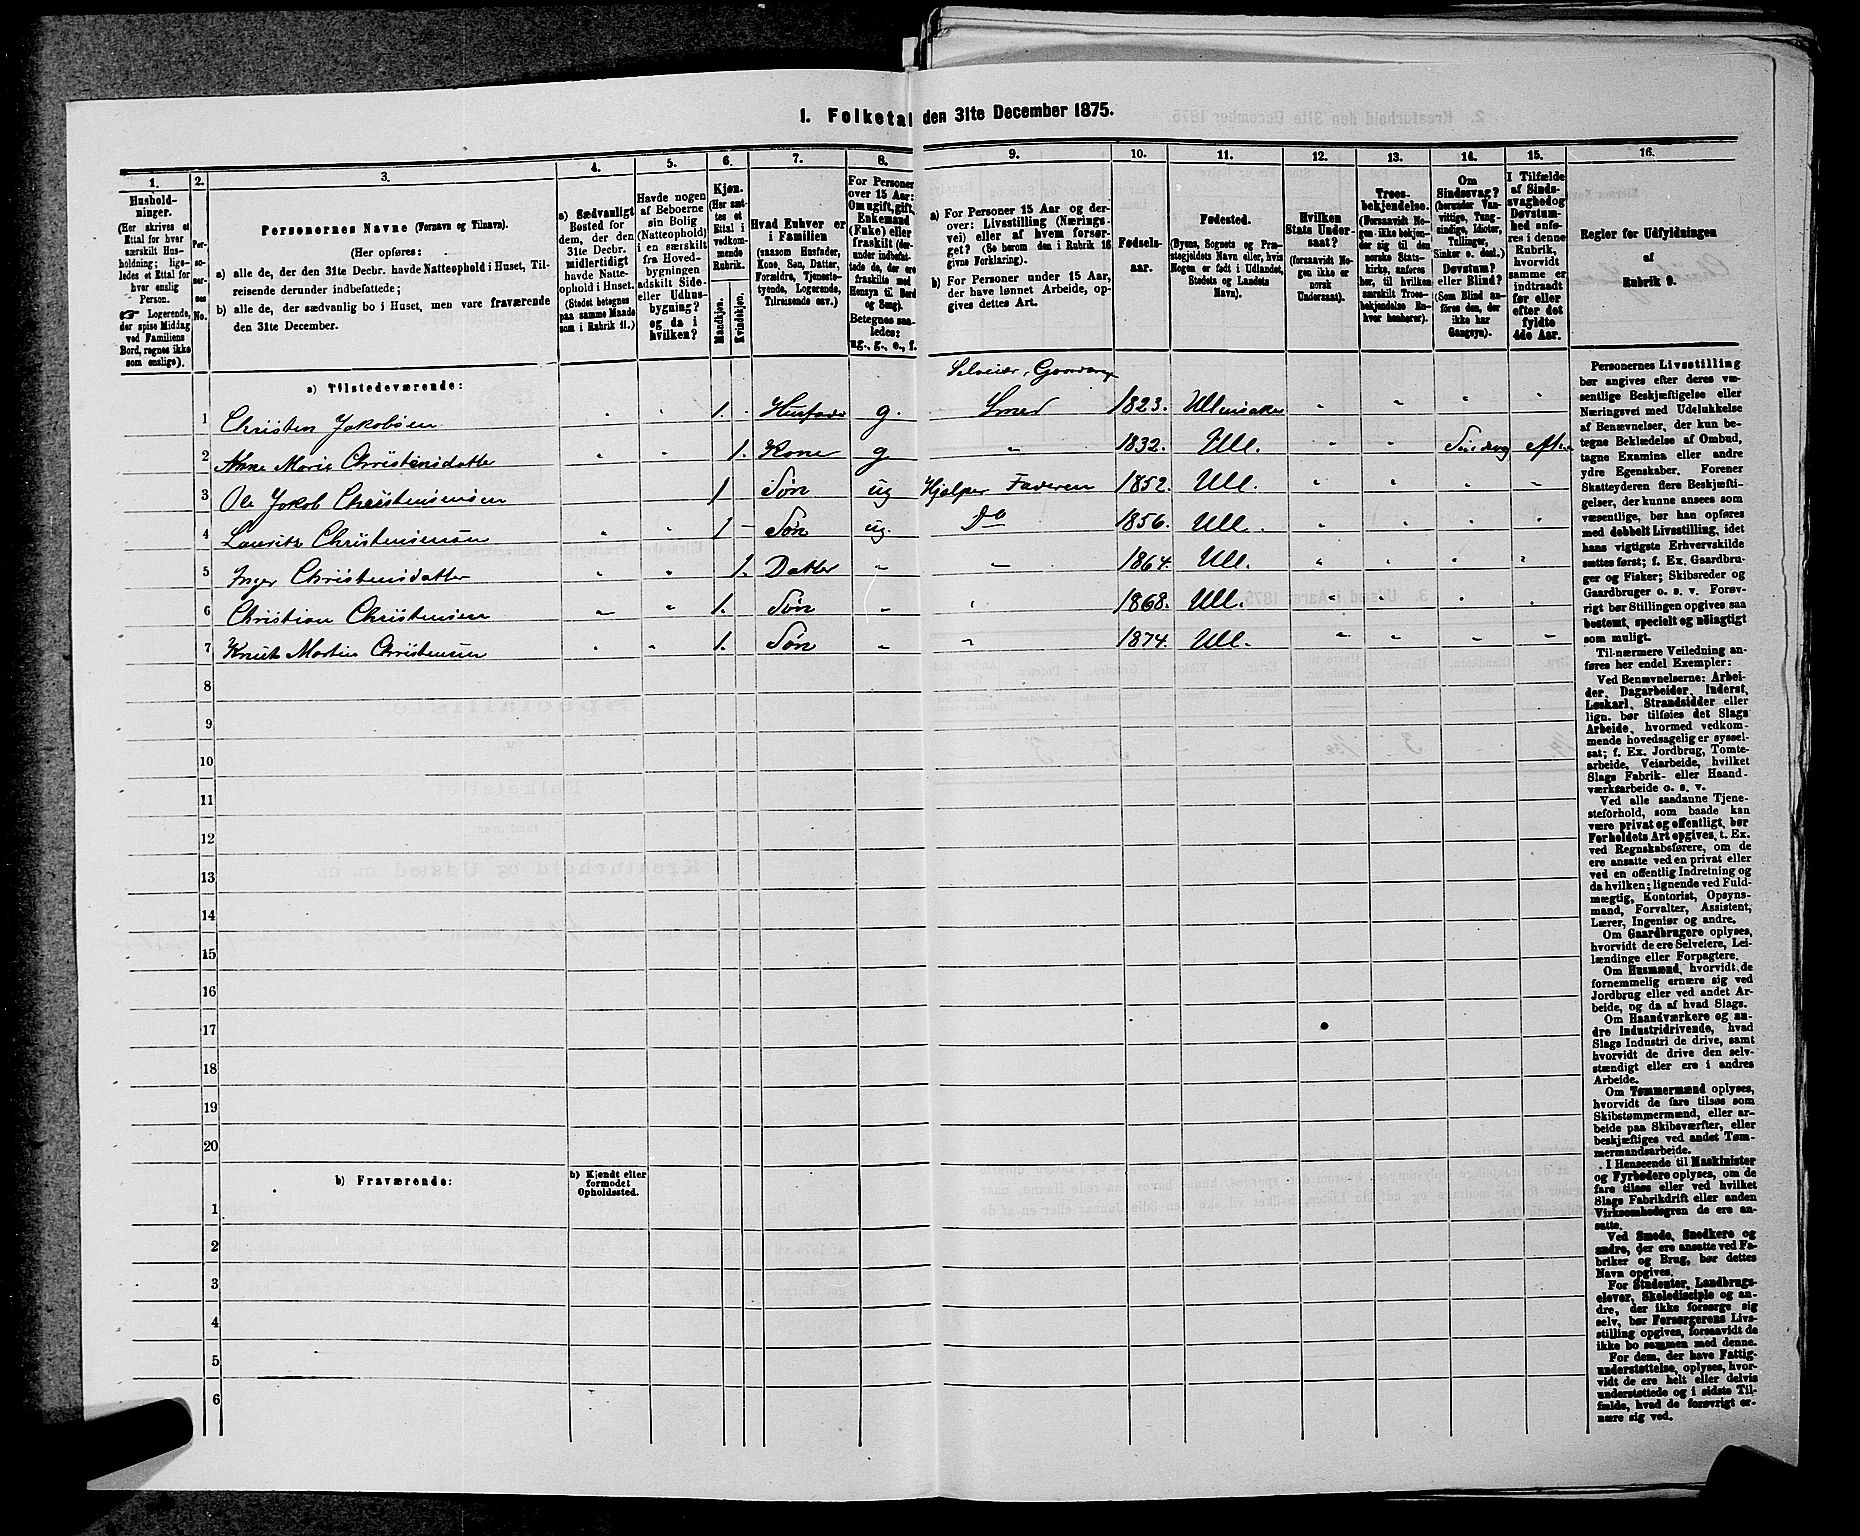 1. Folketal den 31te December 1875.
1. 2. 3. 4. 5. 6. 7. 8. 9. 10. 11. 12. 13. 14. 15. 16.
Husholdninger.
(Her skrives et
Ettal for hver
særskilt Husholdning;
ligeledes et Ettal for
hver enslig
Person.
☞ Logerende,
der spise Middag
ved Familiens
Bord, regnes ikke
som enslige).
Personernes No.
Personernes Navne (Fornavn og Tilnavn).
(Her opføres:
a) alle de, der den 31te Decbr. havde Natteophold i Huset, Tilreisende derunder indbefattede;
b) alle de, der sædvanlig bo i Huset, men vare fraværende
den 31te December.
a) Sædvanligt
Bosted for
dem, der den
31te Decbr.
midlertidigt
havde Natteophold i Huset.
(Stedet betegnes
paa samme Maade
som i Rubrik 11.)
Havde nogen
af Beboerne
sin Bolig
(Natteophold)
i en særskilt
fra Hovedbygningen
adskilt Side-
eller Udhusbygning?
og da i
hvilken?
Kjøn.
(Her sættes et
Ettal i
vedkommende
Rubrik.
Mandkjøn.
Kvindekjøn.
Hvad Enhver er
i Familien
(saasom Husfader,
Kone, Søn, Datter,
Forældre, Tjenestetyende, Logerende,
Tilreisende osv.)
For Personer
over 15 Aar:
Om ugift, gift,
Enkemand
(Enke) eller
fraskilt (derunder
indbefattede de, der ere
fraskilte med
Hensyn til Bord
og Seng).
Betegnes saaledes:
ug., g., e., f.
a) For Personer 15 Aar og derover: Livsstilling (Næringsvei) eller af hvem forsørget? (Se herom den i Rubrik 16
givne Forklaring).
b) For Personer under 15 Aar,
der have lønnet Arbeide, opgives dettes Art.
Fødselsaar.
Fødested.
(Byens, Sognets og Præstegjeldets Navn, eller, hvis
Nogen er født i Udlandet,
Stedets og Landets
Navn).
Hvilken
Stats Undersaat?
(forsaavidt Nogen ikke er
norsk
Undersaat).
Troesbekjendelse.
(Forsaavidt Nogen ikke bekjender sig til den
norske Statskirke, anføres
her, til hvilken
særskilt Troesbekjendelse Enhver henhører).
Om
Sindssvag?
(herunder Vanvittige, Tungsindige, Idioter,
Tullinger,
Sinker o. desl.)
Døvstum?
eller Blind?
(Som Blind anføres den, der
ikke har
Gangsyn).
I Tilfælde
af Sindssvaghed og
Døvstumhed anføres i denne
Rubrik,
hvorvidt
samme er
indtraadt
før eller
efter det
fyldte
4de Aar.
Regler for Udfyldningen
af
Rubrik 9.
a) Tilstedeværende:
Selveier, Gaardbr.
1 Christen Jakobsen " " 1. . Husfader g. Smed 1823. Ullensaker " " " "
2 Anne Marie Christensdatter " " 1. Kone g " 1832. Ull. " " Sindsvg efter
3 Ole Jakob Christensensøn " " 1 Søn ug Hjelper Faderen 1852. Ull " " " "
4 Lauritz Christensensøn " " 1 – Søn ug. Do 1856. Ull. " " " "
5 Inger Christensdatter " " 1. Datter " " 1864. Ull. " " " "
6 Christian Christensen " " 1. Søn " " 1868. Ull. " " " "
7 Knut Martin Christensen " " 1. Søn " " 1874. Ull. " " " "
8
9
10
11
12
13
14
15
16
17
18
19
20
b) Fraværende:
b) Kjendt eller
formodet
Opholdssted.
1
2
3
4
5
6
Personernes Livsstilling
bør angives efter deres væsentlige Beskjæftigelse eller
Næringsvei med Udelukkelse
af Benævnelser, der kun betegne Beklædelse af Ombud,
tagne Examina eller andre
ydre Egenskaber. Forener
Skatteyderen flere Beskjæftigelser, der kunne ansees som
væsentlige, bør han opføres
med dobbelt Livsstilling, idet
hans vigtigste Erhvervskilde
sættes først; f. Ex. Gaardbruger og Fisker; Skibsreder og
Gaardbruger o. s. v. Forøvrigt bør Stillingen opgives saa
bestemt, specielt og nøiagtigt
som muligt.
Til nærmere Veiledning anføres her endel Exempler:
Ved Benævnelserne: Arbeider, Dagarbeider, Inderst,
Løskarl, Strandsidder eller
lign. bør tilføies det Slags
Arbeide, hvormed vedkommende hovedsagelig er sysselsat; f. Ex. Jordbrug, Tomtearbeide, Veiarbeide, hvilket
Slags Fabrik- eller Haandværksarbeide o. s. v.
Ved alle saadanne Tjenesteforhold, som baade kan
være privat og offentligt, bør
Forholdets Art opgives, t. Ex.
ved Regnskabsførere, om de
ere ansatte ved en privat eller
ved en offentlig Indretning og
da hvilken; lignende ved Fuldmægtig, Kontorist, Opsynsmand, Forvalter, Assistent,
Lærer, Ingeniør og andre.
Om Gaardbrugere oplyses,
hvorvidt de ere Selveiere, Leilændinge eller Forpagtere.
Om Husmænd, hvorvidt de
fornemmelig ernære sig ved
Jordbrug eller ved andet Arbeide, og da af hvad Slags.
Om Haandværkere og andre Industridrivende, hvad
Slags Industri de drive, samt
hvorvidt de drive den selvstændigt eller ere i andres
Arbeide.
Om Tømmermænd oplyses,
hvorvidt de fare tilsøs som
Skibstømmermænd, eller arbeide paa Skibsværfter, eller
beskjæftiges ved andet Tømmermandsarbeide.
I Henseende til Maskinister
og Fyrbødere oplyses, om de
fare tilsøs eller ved hvilket
Slags Fabrikdrift eller anden
Virksomhedsgren de ere ansatte.
Ved Smede, Snedkere og
andre, der ere ansatte ved Fabriker og Brug, bør dettes
Navn opgives.
For Studenter, Landbrugselever, Skoledisciple og andre, der ikke forsørge sig
selv, bør Forsørgerens Livsstilling opgives, forsaavidt de
ikke bo sammen med denne.
For dem, der have Fattigunderstøttelse, oplyses, hvorvidt de ere helt eller delvis
understøttede og i sidste Tilfælde, hvad de forøvrigt ernære sig ved.